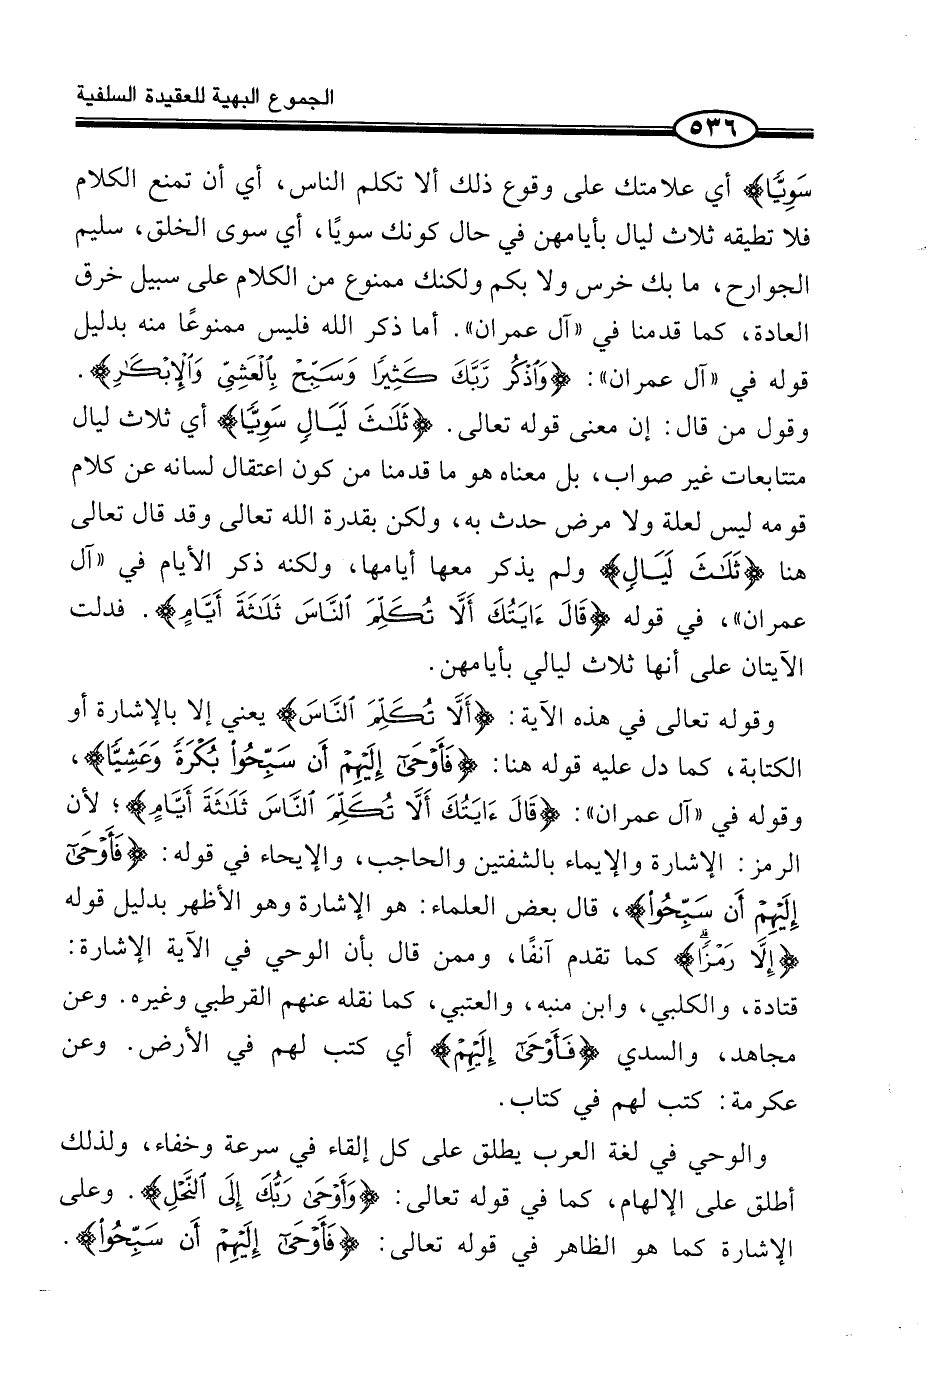 الجموع البهية للعقيدة السلفية
٥٣٦
سَوِيًّا﴾ أي علامتك على وقوع ذلك ألا تكلم الناس، أي أن تمنع الكلام
فلا تطيقه ثلاث ليال بأيامهن في حال كونك سويًا، أي سوى الخلق، سليم
الجوارح، ما بك خرس ولا بكم ولكنك ممنوع من الكلام على سبيل خرق
العادة، كما قدمنا في «آل عمران». أما ذكر الله فليس ممنوعًا منه بدليل
قوله في «آل عمران»: ﴿وَٱذْكُر رَّبَّكَ كَثِيرًا وَسَبِّحْ بِٱلْعَشِيِّ وَٱلْإِبْكَٰرِ﴾.
وقول من قال: إن معنى قوله تعالى. ﴿ثَلَٰثَ لَيَالٍ سَوِيًّا﴾ أي ثلاث ليال
متتابعات غير صواب، بل معناه هو ما قدمنا من كون اعتقال لسانه عن كلام
قومه ليس لعلة ولا مرض حدث به، ولكن بقدرة الله تعالى وقد قال تعالى
هنا ﴿ثَلَٰثَ لَيَالٍ﴾ ولم يذكر معها أيامها، ولكنه ذكر الأيام في «آل
عمران»، في قوله ﴿قَالَ ءَايَتُكَ أَلَّا تُكَلِّمَ ٱلنَّاسَ ثَلَٰثَةَ أَيَّامٍ﴾. فدلت
الآيتان على أنها ثلاث ليالي بأيامهن.
وقوله تعالى في هذه الآية: ﴿أَلَّا تُكَلِّمَ ٱلنَّاسَ﴾ يعني إلا بالإشارة أو
الكتابة، كما دل عليه قوله هنا: ﴿فَأَوْحَىٰٓ إِلَيْهِمْ أَن سَبِّحُوا۟ بُكْرَةً وَعَشِيًّا﴾،
وقوله في «آل عمران»: ﴿قَالَ ءَايَتُكَ أَلَّا تُكَلِّمَ ٱلنَّاسَ ثَلَٰثَةَ أَيَّامٍ﴾؛ لأن
الرمز: الإشارة والإيماء بالشفتين والحاجب، والإيحاء في قوله: ﴿فَأَوْحَىٰٓ
إِلَيْهِمْ أَن سَبِّحُوا۟﴾، قال بعض العلماء: هو الإشارة وهو الأظهر بدليل قوله
﴿إِلَّا رَمْزًاۗ﴾ كما تقدم آنفًا، وممن قال بأن الوحي في الآية الإشارة:
قتادة، والكلبي، وابن منبه، والعتبي، كما نقله عنهم القرطبي وغيره. وعن
مجاهد، والسدي ﴿فَأَوْحَىٰٓ إِلَيْهِمْ﴾ أي كتب لهم في الأرض. وعن
عكرمة: كتب لهم في كتاب.
والوحي في لغة العرب يطلق على كل إلقاء في سرعة وخفاء، ولذلك
أطلق على الإلهام، كما في قوله تعالى: ﴿وَأَوْحَىٰ رَبُّكَ إِلَى ٱلنَّحْلِ﴾. وعلى
الإشارة كما هو الظاهر في قوله تعالى: ﴿فَأَوْحَىٰٓ إِلَيْهِمْ أَن سَبِّحُوا۟﴾.